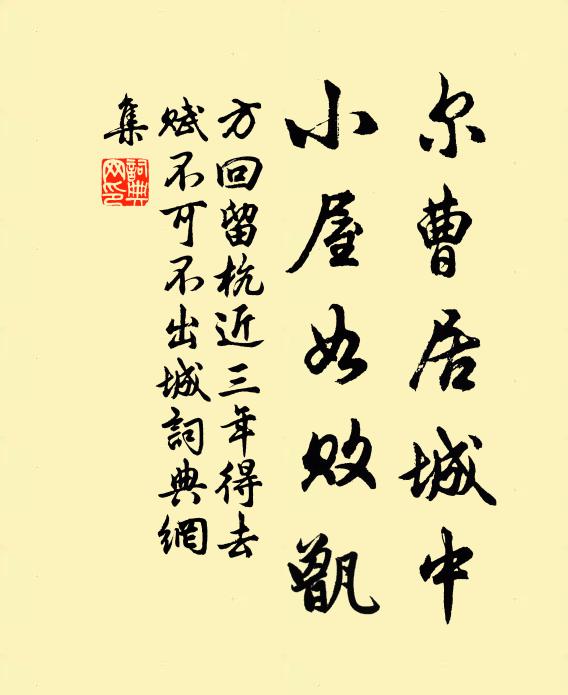 尔曹居城中
小屋如败甑
方回留杭近三年得去
赋不可不出城詞典網
集
詞典網印